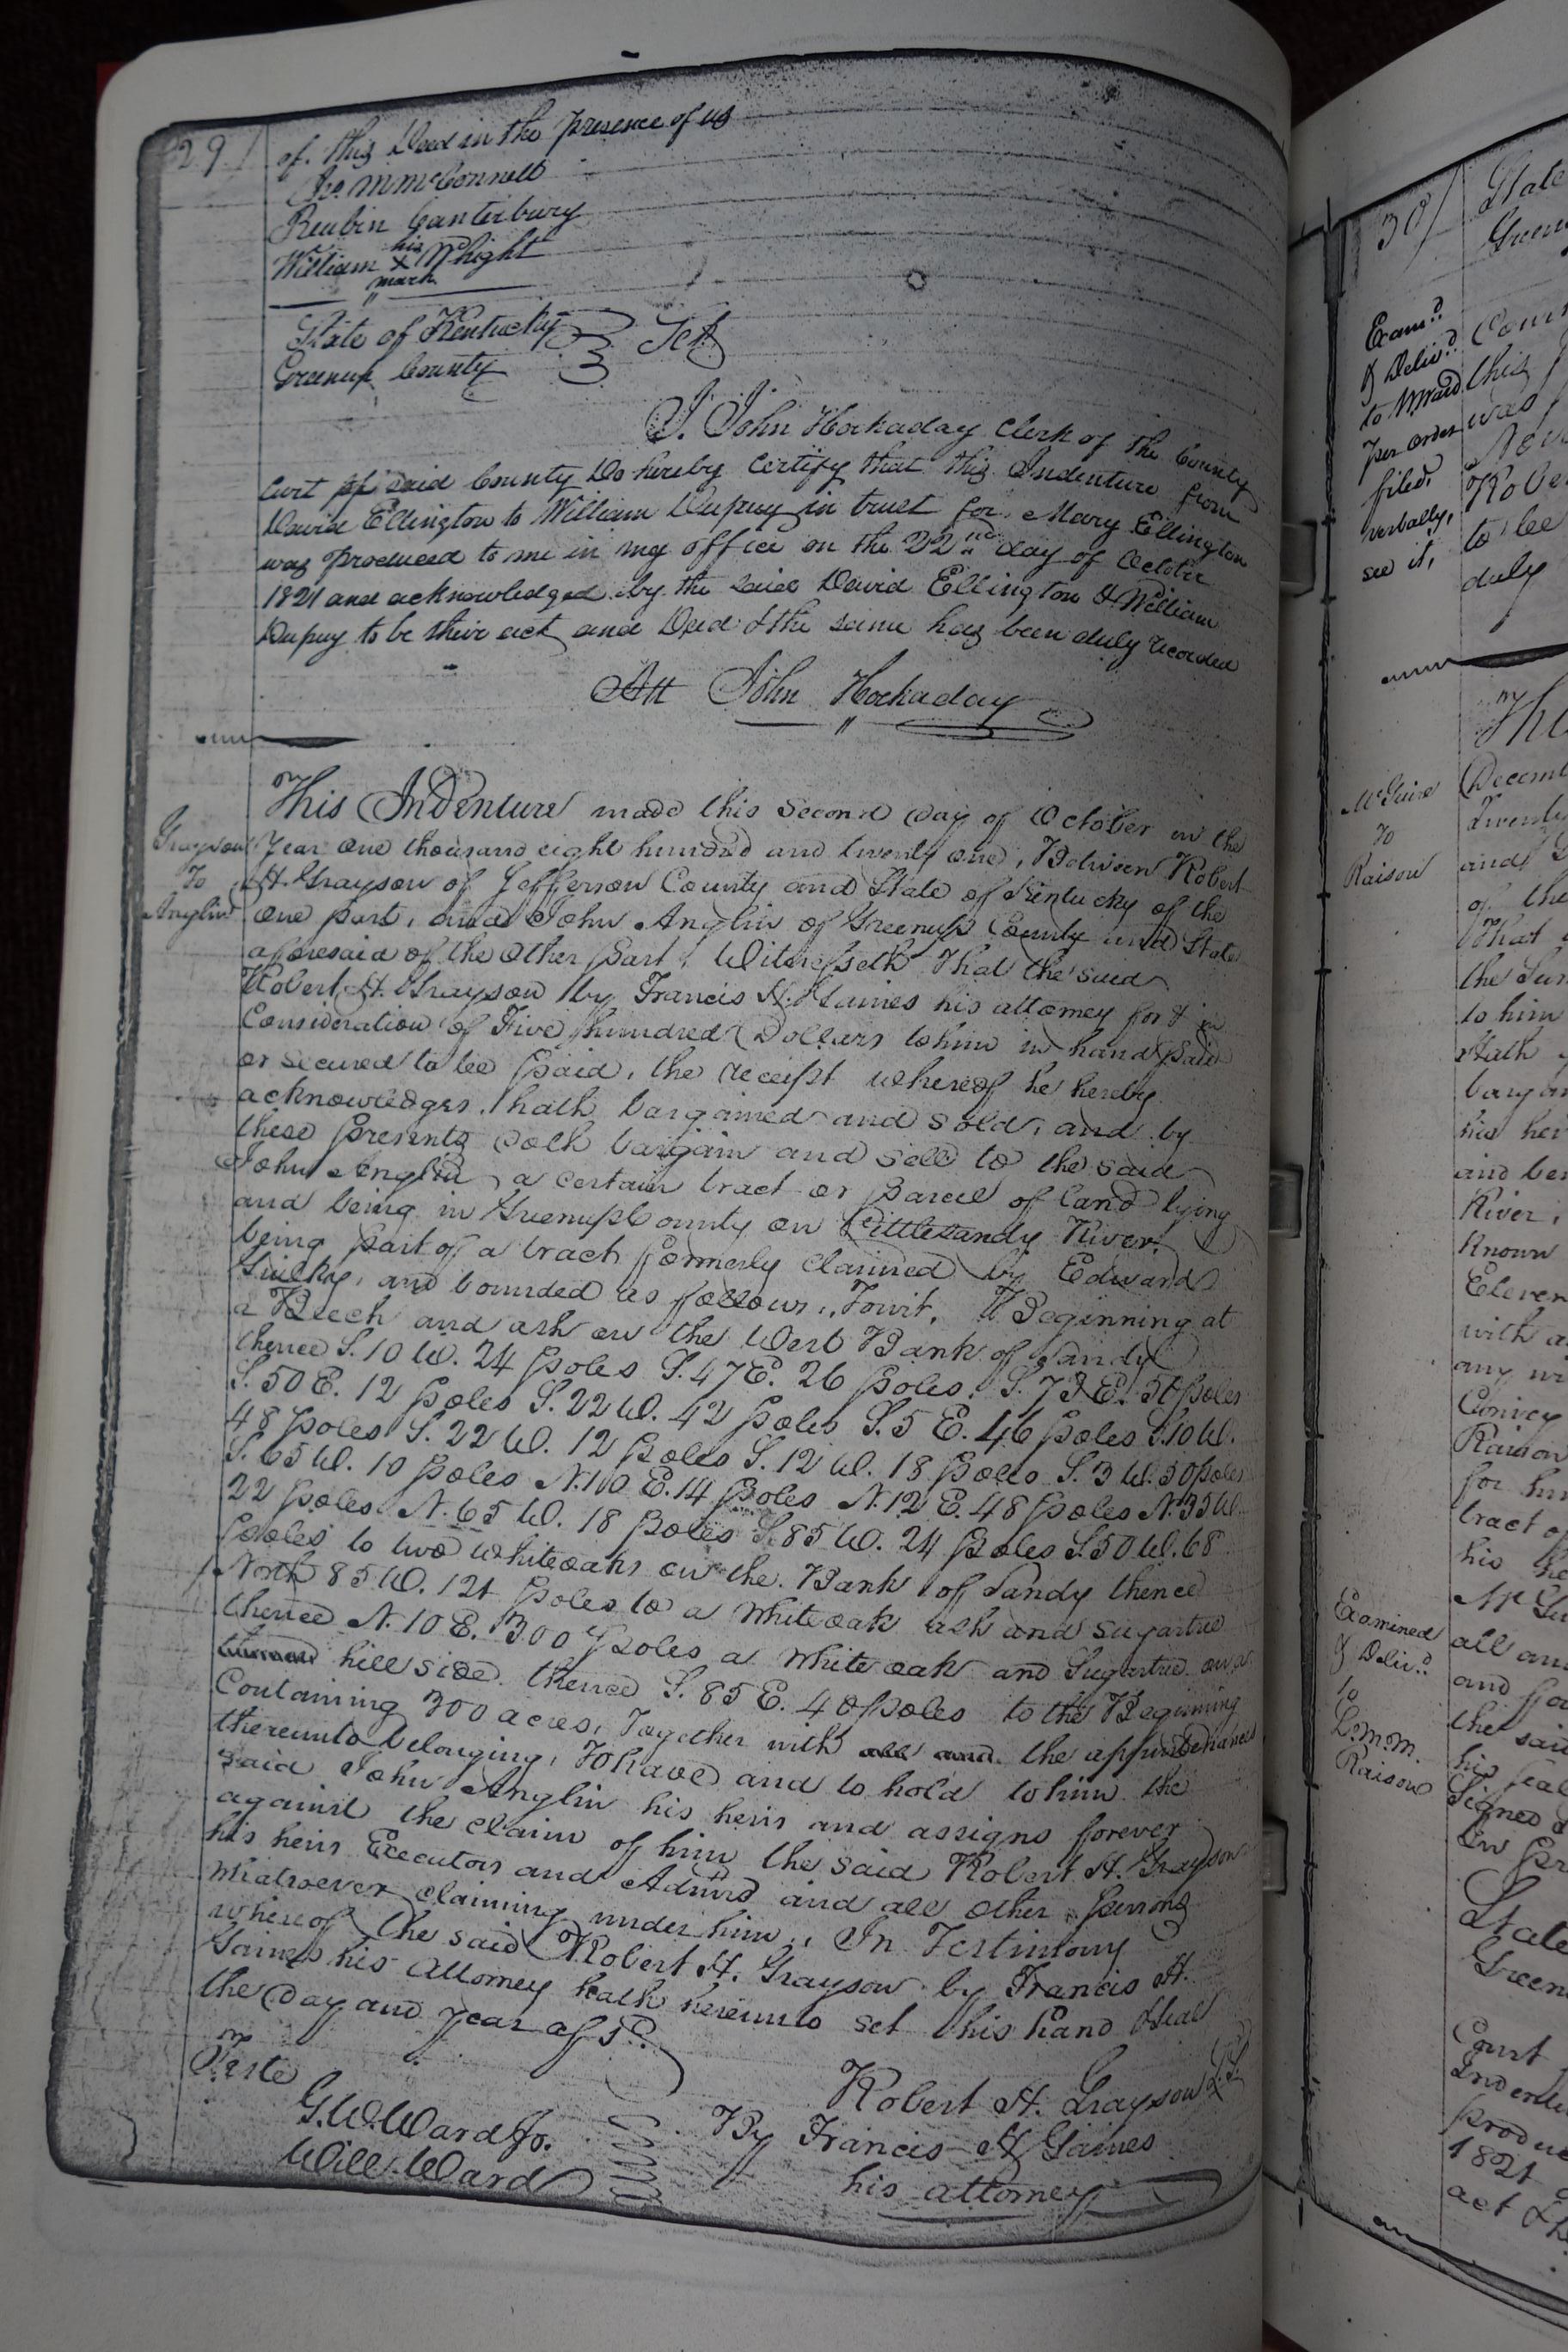 29/
of this Deed in the presence of us
Jno. M McConnell
Reubin Canterbury
William his X mark Wright
State of Kentucky
Greenup County Sct
I, John Hockaday Clerk of the County
Curt of said County Do hereby certify that this Indenture from
David Ellington to William Dupuy in trust for Mary Ellington
was produced to me in my office on the 22nd day of October
1821 and acknowledged by the said David Ellington & William
Dupuy to be their act and Deed & the same has been duly recorded
Att John Hockaday
Grayson
To
Anglin
This Indenture made this second day of October in the
Year one thousand eight hundred and twenty one, Between Robert
H. Grayson of Jefferson County and State of Kentucky of the
one part, and John Anglin of Greenup County and State
aforesaid of the other part, Witnesseth That the said
Robert H. Grayson by Francis H. Gaines his attorney for & in
Consideration of Five hundred Dollars to him in hand paid
or secured to be paid, the receipt whereof he hereby
acknowledges, hath bargained and sold, and by
these presents doth bargain and sell to the said
John Anglin a certain tract or parcel of land lying
and being in Greenup County on Little Sandy River,
being part of a tract formerly claimed by Edward
and bounded as follows, Towit, Beginning at
a Beech and ash on the West Bank of Sandy
thence S. 10 W. 24 poles S. 47 E. 26 poles, S. 73 E. 50 poles
S. 50 E. 12 poles S. 22 W. 42 poles S. 5 E. 46 poles S. 10 W.
48 poles S. 22 W. 12 poles S. 12 W. 18 poles S. 3 W. 50 poles
S. 65 W. 10 poles N. 10 E. 14 poles N. 12 E. 48 poles N. 35 W.
22 poles N. 65 W. 18 poles S. 85 W. 24 poles S. 50 W. 68
poles to two whiteoaks on the Bank of Sandy thence
North 85 W. 121 poles to a white oak ash and sugartree
thence N. 10 E. 300 poles a white oak and Sugartree on a
hill side thence S. 85 E. 40 poles to the Beginning
Containing 300 acres, Together with all and the appurtenances
thereunto belonging, To have and to hold to him the
said John Anglin his heirs and assigns forever
against the claim of him the said Robert H. Grayson
his heirs Executors and Admrs and all other persons
whatsoever claiming under him, In Testimony
whereof the said Robert H. Grayson by Francis H.
Gaines his attorney hath hereunto set his hand & seal
the day and year afsd.
Teste
G. W. Ward Jr.
Will. Ward
Robert H. Grayson L.S.
By Francis H Gaines
his attorney
30/
State
Exam.d
& Deliv.d
to W Ward
per order
filed,
verbally,
see it,
this
was
to be
duly
McGuire
To
Raison
Decem
Twenty
and
of the
That
to him
Hath
his hei
River,
Known
Eleven
with a
Convey
Raison
tract o
his he
Examined
& Deliv.d
to
L.M.M.
Raison
all an
the said
his seal
Signed &
State
Green
Court
Indentu
produc
1821
act & the